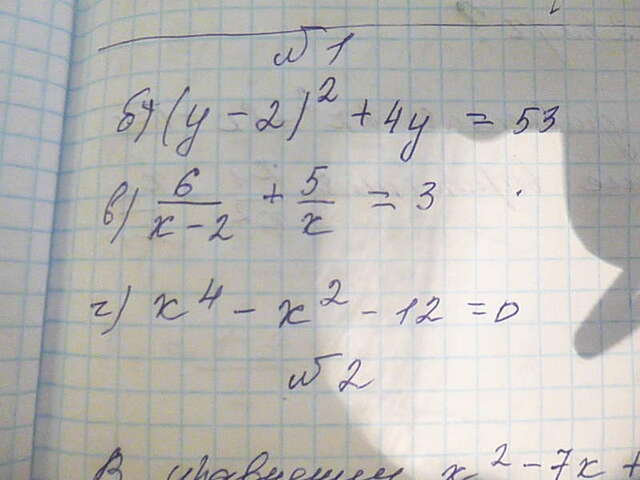 № 1
б) (y - 2)² + 4y = 53
в) 6/(x - 2) + 5/x = 3
г) x⁴ - x² - 12 = 0
№ 2
В уравнении x² - 7x +